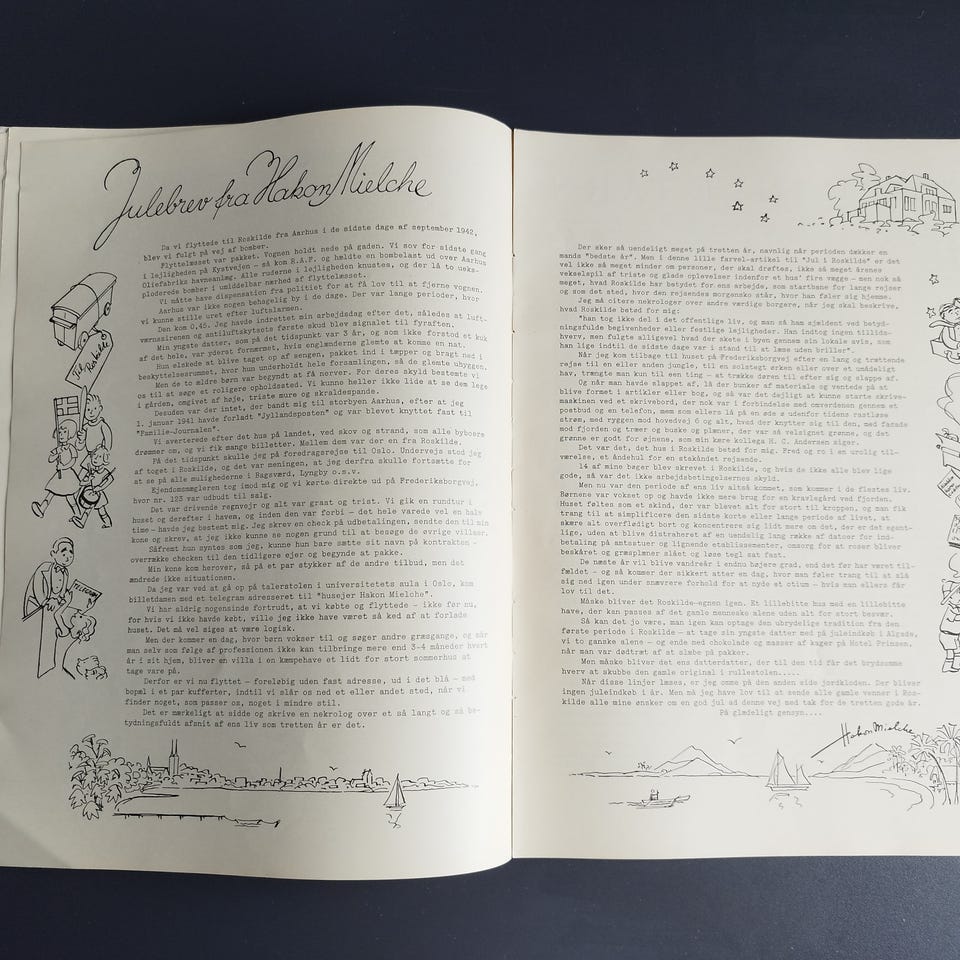 Julebrev fra Hakon Mielche
Da vi flyttede til Roskilde fra Aarhus i de sidste dage af september 1942,
blev vi fulgt på vej af bomber.
Flyttelæsset var pakket. Vognen holdt nede på gaden. Vi sov for sidste gang
i lejligheden på Kystvejen – så kom R.A.F. og hældte en bombelast ud over Aarhus
Oliefabriks havneanlæg. Alle ruderne i lejligheden knustes, og der lå to ueks-
ploderede bomber i umiddelbar nærhed af flyttelæsset.
Vi måtte have dispensation fra politiet for at få lov til at fjerne vognen.
Aarhus var ikke nogen behagelig by i de dage. Der var lange perioder, hvor
vi kunne stille uret efter luftalarmen.
Den kom 0,45. Jeg havde indrettet min arbejdsdag efter det, således at luft-
værnssirenen og antiluftskytsets første skud blev signalet til fyraften.
Min yngste datter, som på det tidspunkt var 3 år, og som ikke forstod et kuk
af det hele, var yderst fornærmet, hvis englænderne glemte at komme en nat.
Hun elskede at blive taget op af sengen, pakket ind i tæpper og bragt ned i
beskyttelsesrummet, hvor hun underholdt hele forsamlingen, så de glemte uhyggen.
Men de to ældre børn var begyndt at få nerver. For deres skyld bestemte vi
os til at søge et roligere opholdssted. Vi kunne heller ikke lide at se dem lege
i gården, omgivet af høje, triste mure og skraldespande.
Desuden var der intet, der bandt mig til storbyen Aarhus, efter at jeg
1. januar 1941 havde forladt "Jyllandsposten" og var blevet knyttet fast til
"Familie-Journalen".
Vi averterede efter det hus på landet, ved skov og strand, som alle byboere
drømmer om, og vi fik mange billetter. Mellem dem var der en fra Roskilde.
På det tidspunkt skulle jeg på foredragsrejse til Oslo. Undervejs stod jeg
af toget i Roskilde, og det var meningen, at jeg derfra skulle fortsætte for
at se på alle mulighederne i Bagsværd, Lyngby o.s.v.
Ejendomsmægleren tog imod mig og vi kørte direkte ud på Frederiksborgvej,
hvor nr. 123 var udbudt til salg.
Det var drivende regnvejr og alt var gråt og trist. Vi gik en rundtur i
huset og derefter i haven, og inden den var forbi – det hele varede vel en halv
time – havde jeg bestemt mig. Jeg skrev en check på udbetalingen, sendte den til min
kone og skrev, at jeg ikke kunne se nogen grund til at besøge de øvrige villaer.
Såfremt hun syntes som jeg, kunne hun bare sætte sit navn på kontrakten –
overrække checken til den tidligere ejer og begynde at pakke.
Min kone kom herover, så på et par stykker af de andre tilbud, men det
ændrede ikke situationen.
Da jeg var ved at gå op på talerstolen i universitetets aula i Oslo, kom
billetdamen med et telegram adresseret til "husejer Hakon Mielche".
Vi har aldrig nogensinde fortrudt, at vi købte og flyttede – ikke før nu,
for hvis vi ikke havde købt, ville jeg ikke have været så ked af at forlade
huset. Det må vel siges at være logisk.
Men der kommer en dag, hvor børn vokser til og søger andre græsgange, og når
man selv som følge af professionen ikke kan tilbringe mere end 3-4 måneder hvert
år i sit hjem, bliver en villa i en kæmpehave et lidt for stort sommerhus at
tage vare på.
Derfor er vi nu flyttet – foreløbig uden fast adresse, ud i det blå – med
bopæl i et par kufferter, indtil vi slår os ned et eller andet sted, når vi
finder noget, som passer os, noget i mindre stil.
Det er mærkeligt at sidde og skrive en nekrolog over et så langt og så be-
tydningsfuldt afsnit af ens liv som tretten år er det.
Til Roskilde
TELEGRAM
Der sker så uendeligt meget på tretten år, navnlig når perioden dækker en
mands "bedste år". Men i denne lille farvel-artikel til "Jul i Roskilde" er det
vel ikke så meget minder om personer, der skal drøftes, ikke så meget årenes
vekselspil af triste og glade oplevelser indenfor et hus' fire vægge – men nok så
meget, hvad Roskilde har betydet for ens arbejde, som startbane for lange rejser
og som det sted, hvor den rejsendes morgensko står, hvor han føler sig hjemme.
Jeg må citere nekrologer over andre værdige borgere, når jeg skal beskrive,
hvad Roskilde betød for mig:
"han tog ikke del i det offentlige liv, og man så ham sjældent ved betyd-
ningsfulde begivenheder eller festlige lejligheder. Han indtog ingen tillids-
hverv, men fulgte alligevel hvad der skete i byen gennem sin lokale avis, som
han lige indtil de sidste dage var i stand til at læse uden briller".
Når jeg kom tilbage til huset på Frederiksborgvej efter en lang og trættende
rejse til en eller anden jungle, til en solstegt ørken eller over et umådeligt
hav, trængte man kun til een ting – at trække døren til efter sig og slappe af.
Og når man havde slappet af, lå der bunker af materiale og ventede på at
blive formet i artikler eller bog, og så var det dejligt at kunne starte skrive-
maskinen ved et skrivebord, der nok var i forbindelse med omverdenen gennem et
postbud og en telefon, men som ellers lå på en øde ø udenfor tidens rastløse
strøm, med ryggen mod hovedvej 6 og alt, hvad der knytter sig til den, med facade
mod fjorden og træer og buske og plæner, der var så velsignet grønne, og det
grønne er godt for øjnene, som min kære kollega H. C. Andersen siger.
Det var det, det hus i Roskilde betød for mig. Fred og ro i en urolig til-
værelse, et åndehul for en stakåndet rejsende.
14 af mine bøger blev skrevet i Roskilde, og hvis de ikke alle blev lige
gode, så var det ikke arbejdsbetingelsernes skyld.
Men nu var den periode af ens liv altså kommet, som kommer i de flestes liv.
Børnene var vokset op og havde ikke mere brug for en kravlegård ved fjorden.
Huset føltes som et skind, der var blevet alt for stort til kroppen, og man fik
trang til at simplificere den sidste korte eller lange periode af livet, at
skære alt overflødigt bort og koncentrere sig lidt mere om det, der er det egent-
lige, uden at blive distraheret af en uendelig lang række af datoer for ind-
betaling på amtsstuer og lignende etablissementer, omsorg for at roser bliver
beskåret og græsplæner slået og løse tegl sat fast.
De næste år vil blive vandreår i endnu højere grad, end det før har været til-
fældet – og så kommer der sikkert atter en dag, hvor man føler trang til at slå
sig ned igen under snævrere forhold for at nyde et otium – hvis man ellers får
lov til det.
Måske bliver det Roskilde-egnen igen. Et lillebitte hus med en lillebitte
have, der kan passes af det gamle menneske alene uden alt for stort besvær.
Så kan det jo være, man igen kan optage den ubrydelige tradition fra den
første periode i Roskilde – at tage sin yngste datter med på juleindkøb i Algade,
vi to ganske alene – og ende med chokolade og masser af kager på Hotel Prinsen,
når man var dødtræt af at slæbe på pakker.
Men måske bliver det ens datterdatter, der til den tid får det brydsomme
hverv at skubbe den gamle original i rullestolen.....
Når disse linjer læses, er jeg omme på den anden side jordkloden. Der bliver
ingen juleindkøb i år. Men må jeg have lov til at sende alle gamle venner i Ros-
kilde alle mine ønsker om en god jul ad denne vej med tak for de tretten gode år.
På glædeligt gensyn....
Hakon Mielche